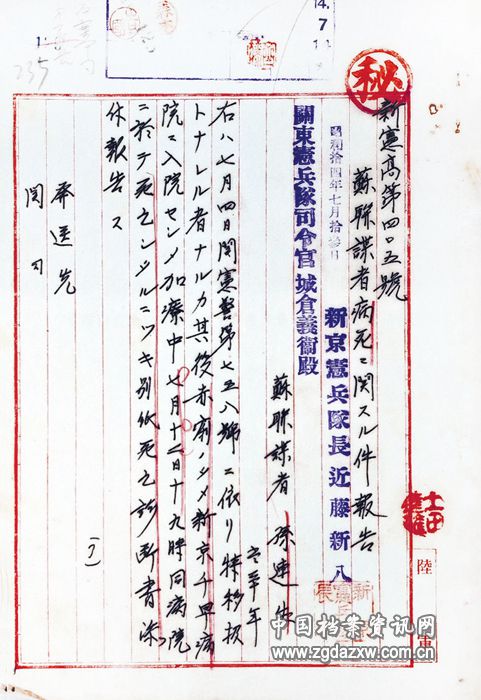 秘
新憲高第四〇五號
蘇聯諜者病死ニ関スル件報告
昭和拾四年七月拾参日
新京憲兵隊長近藤新八
關東憲兵隊司令官城倉義衞殿
蘇聯諜者 孫連生
右ハ七月四日関憲警第七五八號ニ依リ特移扱
トナレル者ナルカ其後赤痢ノタメ新京千早病
院ニ入院セシメ加療中七月十二日十九時同病院
ニ於テ死亡シタルニツキ別紙死亡診断書添
付報告ス
発送先
関司
(了)
陸
中国档案资讯网
www.zgdazxw.com.cn